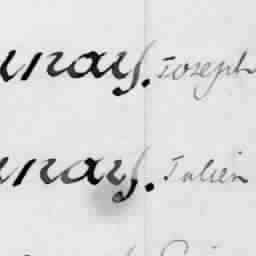 unay. Joseph
unay. Julien